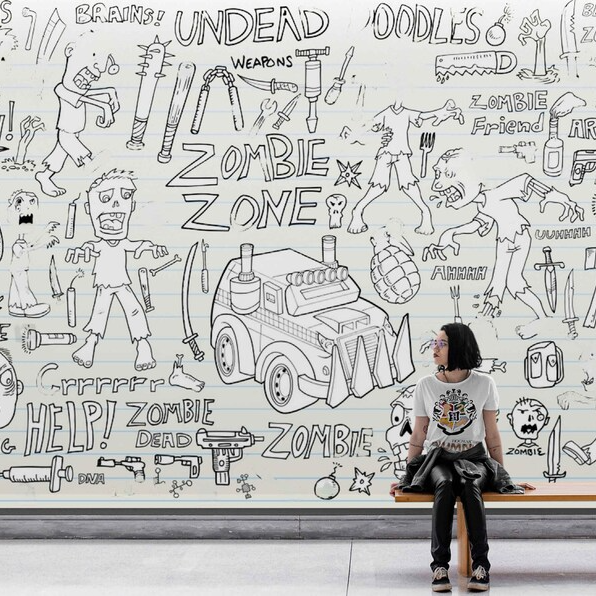 BRAINS!
UNDEAD
OODLES
WEAPONS
ZOMBIE
Friend
ZOMBIE
ZONE
UUHHHH
AHHHH
Grrrrrrr
HELP!
ZOMBIE
DEAD
ZOMBIE
ZOMBIE
DNA